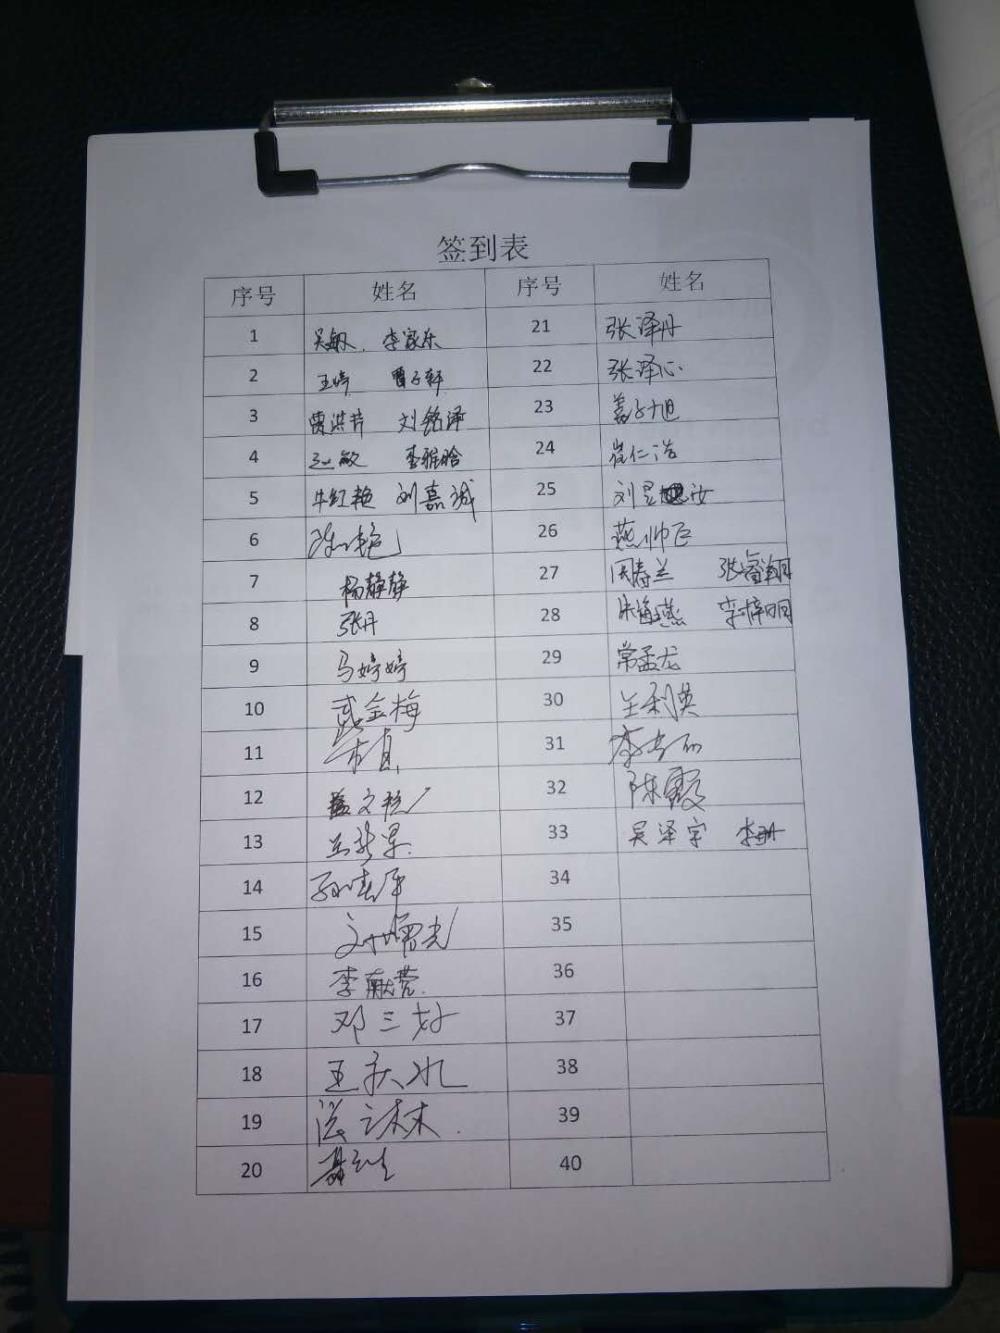 签到表
序号 姓名 序号 姓名
1 吴敏 李家乐 21 张泽丹
2 王婷 曹子轩 22 张泽心
3 曹洪芹 刘铭泽 23 旭
4 敏 李雅晗 24 崔仁浩
5 牛红艳 刘嘉诚 25 刘昱汝
6 陈艳 26 燕帅臣
7 杨静静 27 周寿兰 张睿翔
8 张丹 28 朱海燕 李梓明
9 马婷婷 29 常孟龙
10 武金梅 30 王利英
11 31 李
12 文艳 32 陈霞
13 王 33 吴泽宇 李珊
14 孙 34
15 35
16 李献营 36
17 邓三好 37
18 王庆水 38
19 林 39
20 40